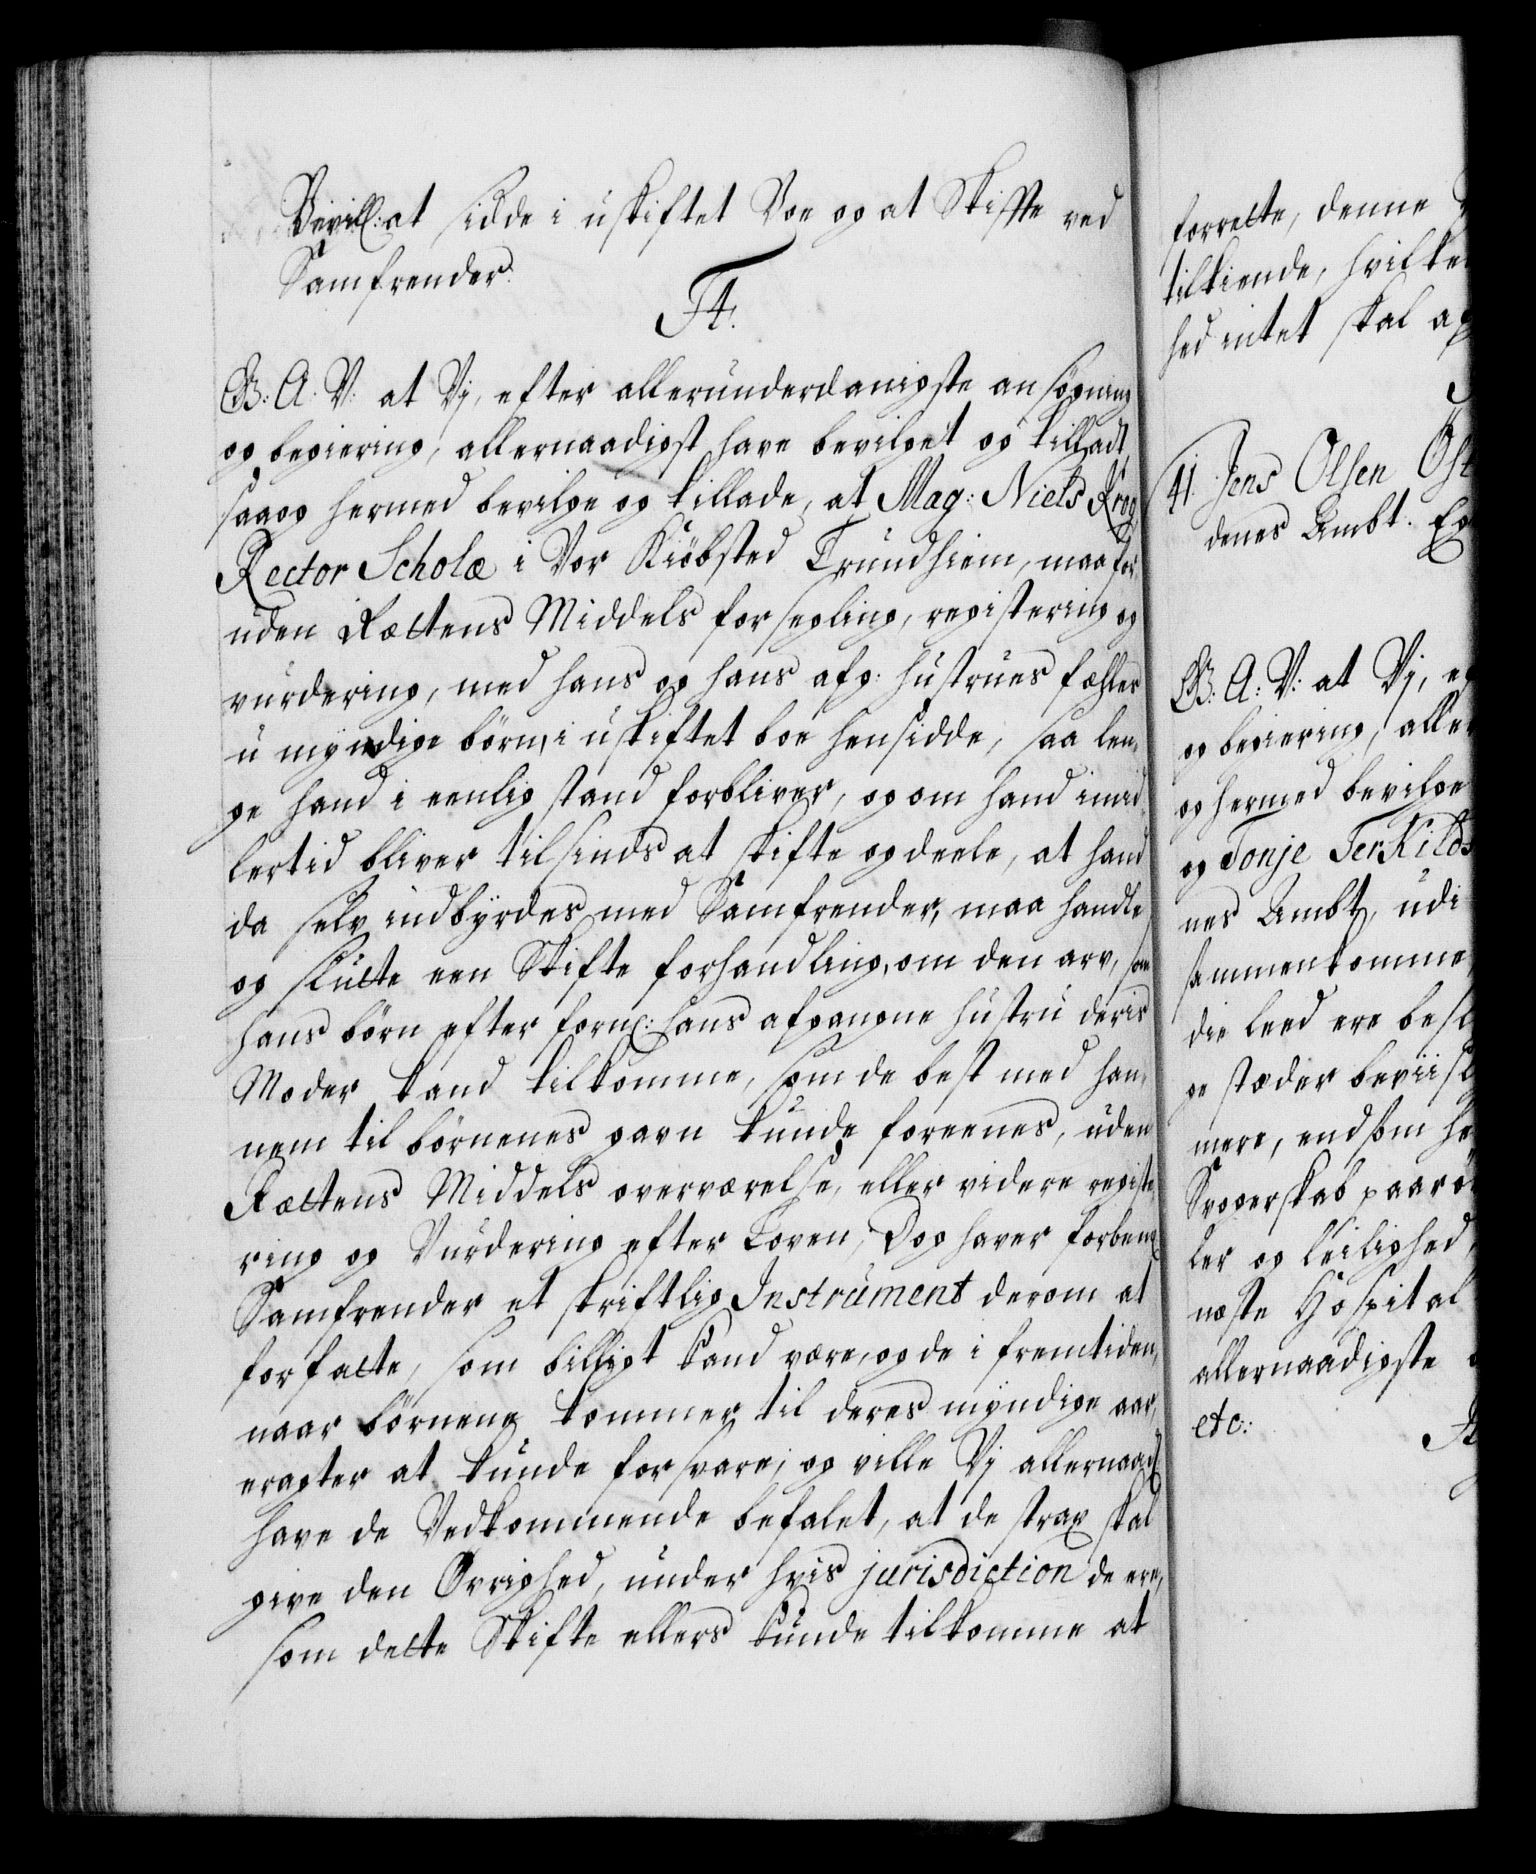 Bevill: at sidde i uskiftet Boe og at Skifte ved
Samfrender.
F4.
G. A. V: at Vj, efter allerunderdanigste ansøgning
og begiering, allernaadigst have bevilget og tilladt,
saa og hermed bevilge og tillade, at Mag: Niels Krog
Rector Scholæ i Vor Kiøbsted Trundhiem, maa for-
uden Rættens Middels forsegling, registering og
vurdering, med hans og hans afg: hustrues fælles
umyndige børn, i uskiftet boe hensidde, saa len-
ge hand i eenlig stand forbliver, og om hand imid-
lertid bliver tilsinds at skifte og deele, at hand
da selv indbyrdes med Samfrender, maa handle
og slutte een Skifte forhandling, om den arv, som
hans børn efter forn: hans afgangne hustru deris
Moder kand tilkomme, som de best med han-
nem til børnenes gavn kunde foreenes, uden
Rættens Middels overværelse, eller videre registe-
ring og Vurdering efter Loven, Dog haver forben:
Samfrender et skriftlig Instrument derom at
forfatte, som billigt kand være, og de i fremtiden,
naar børnene kommer til deres myndige aar,
eragter at kunde forsvare; og ville Vj allernaad:
have de Vedkommende befalet, at de strax skal
give den Øvrighed, under hvis jurisdiction de ere,
som dette Skifte ellers kunde tilkomme at
forrette, denne
tilkiende, hvilke
hed intet skal
41. Jens Olsen
denes Ambt.
G. A. V: at Vj,
og begiering, aller
og hermed bevilge
og Tonje TerKilds
nes Ambt, udi
sammenkomme,
die leed ere besl
ge stæder beviisl
mere, end som
Svogerskab paarø
ler og leilighed,
neste Hospital
allernaadigste
etc: